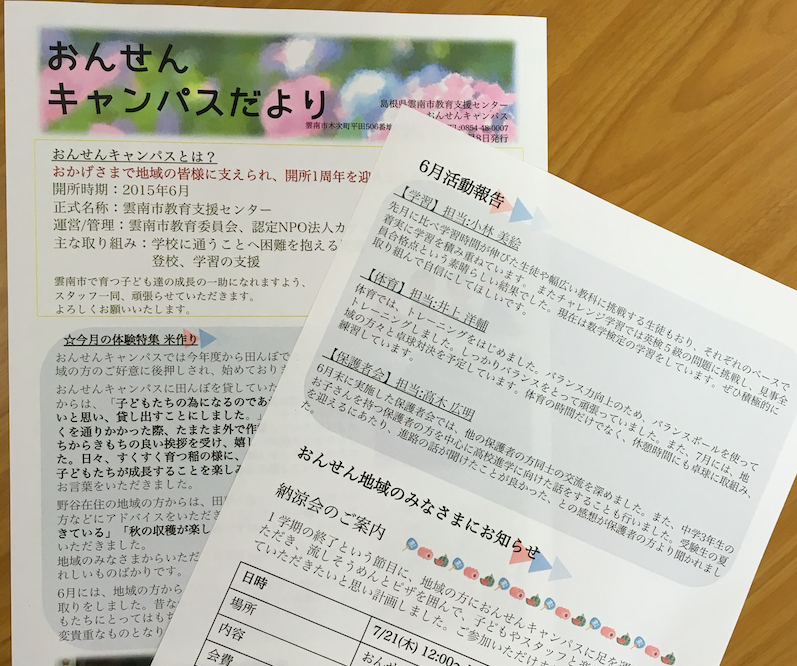 おんせん
キャンパスだより
島根県雲南市教育支援センター
おんせんキャンパス
雲南市木次町平田506番地
0854-48-0007
8日発行
おんせんキャンパスとは？
おかげさまで地域の皆様に支えられ、開所1周年を迎
開所時期：2015年6月
正式名称：雲南市教育支援センター
運営/管理：雲南市教育委員会、認定NPO法人カ
主な取り組み：学校に通うことへ困難を抱える
登校、学習の支援
雲南市で育つ子ども達の成長の一助になれますよう、
スタッフ一同、頑張らせていただきます。
よろしくお願いいたします。
☆今月の体験特集 米作り
おんせんキャンパスでは今年度から田んぼで
域の方のご好意に後押しされ、始めており
おんせんキャンパスに田んぼを貸していた
からは、「子どもたちの為になるのであ
いと思い、貸し出すことにしました。」
くを通りかかった際、たまたま外で作
ちからきもちの良い挨拶を受け、嬉し
た。日々、すくすく育つ稲の様に、
子どもたちが成長することを楽しみ
お言葉をいただきました。
野谷在住の地域の方からは、田
方などにアドバイスをいただき
きている」「秋の収穫が楽し
いただきました。
地域のみなさまからいただ
れしいものばかりです。
6月には、地域の方から
取りをしました。昔な
もたちにとってはもち
変貴重なものとなり
6月活動報告
【学習】担当:小林 美絵
先月に比べ学習時間が伸びた生徒や幅広い教科に挑戦する生徒もおり、それぞれのペースで
着実に学習を積み重ねています。またチャレンジ学習では英検５級の問題に挑戦し、見事全
員合格点という素晴らしい結果でした。現在は数字検定の学習をしています。ぜひ積極的に
取り組んで自信にしてほしいです。
【体育】担当:井上 洋輔
体育では、トレーニングをはじめました。バランス力向上のため、バランスボールを使って
トレーニングしました。しっかりバランスをとって頑張っていました。また、7月には、地
域の方々と卓球対決を予定しています。体育の時間だけでなく、休憩時間にも卓球に取組み、
練習しています。
【保護者会】担当:高木 広明
6月末に実施した保護者会では、他の保護者の方同士の交流を深めました。また、中学3年生の
お子さんを持つ保護者の方を中心に高校進学に向けた話をすることも行いました。受験生の夏
を迎えるにあたり、進路の話が聞けたことが良かった、との感想が保護者の方より聞かれまし
た。
おんせん地域のみなさまにお知らせ
納涼会のご案内
１学期の終了という節目に、地域の方におんせんキャンパスに足を運
ただき、流しそうめんとピザを囲んで、子どもやスタッフと
ていただきたいと思い計画しました。ご参加いただけま
日時
7/21(木) 12:00～
場所
おんせ
内容
会費